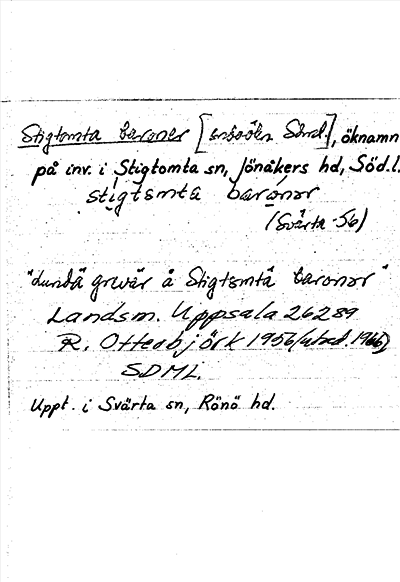 Stigtomta baroner [snööln Sörml.], öknamn
på inv. i Stigtomta sn, Jönåkers hd, Söd.l.
stigtomta baronor
(Svärta -56)
"Lundä grevär å Stigtomtä baronor"
Landsm. Uppsala 26289
R. Otterbjörk 1956 (utard. 1966)
SDML.
Uppt. i Svärta sn, Rönö hd.